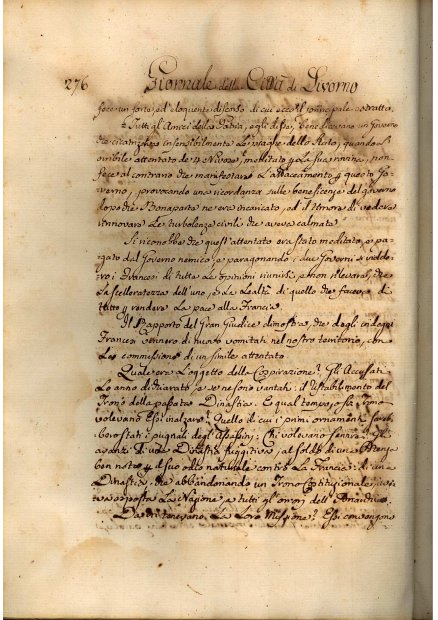 276 Giornale della Città di Livorno
fece un forte, ed eloquente discorso di cui ecco il principale estratto.
Tutti gli Amici della Patria, egli disse, benedicevano un Governo
che cicatrizzava insensibilmente le piaghe dello Stato, quando l'
orribile attentato de 3 Nivoso, meditato p la sua rovina, non
fece al contrario che manifestare l'attaccamento p questo Go-
verno, provocando una ricordanza sulle beneficenze del governo
dopo che Bonaparte ne era incaricato, ed il timore di vedere
rinnovare le turbolenze civili che aveva calmate.
Si riconobbe che quest'attentato era stato meditato, e pa-
gato dal Governo nemico, e paragonando i due Governi si videro
i Francesi di tutte le opinioni riunirsi, e non rilevare, che
la scelleratezza dell'uno, e la lealtà di quello che faceva di
tutto p rendere la pace alla Francia.
Il Rapporto del Gran Giudice dimostra, che degli indegni
Francesi vennero di nuovo vomitati nel nostro territorio, con
la commissione di un simile attentato.
Quale era l'oggetto della Cospirazione? Gli Accusati
lo anno dichiarato, e se ne sono vantati: il ristabilimento del
Trono della passata Dinastia. E qual tempo, e su
volevano Essi inalzare? Quello di cui i primi ornamenti sareb-
bero stati i pugnali degl'Assassini: Chi volevano servire? Gli
avanzi di una Dinastia fuggitiva, al soldo di una Potenza
ben nota p il suo odio naturale contro la Francia: di una
Dinastia, che abbandonando un Trono Costituzionale,
esposta la Nazione a tutti gli orrori dell'Anarchia.
Da chi tenevano la loro Missione? Essi convengono